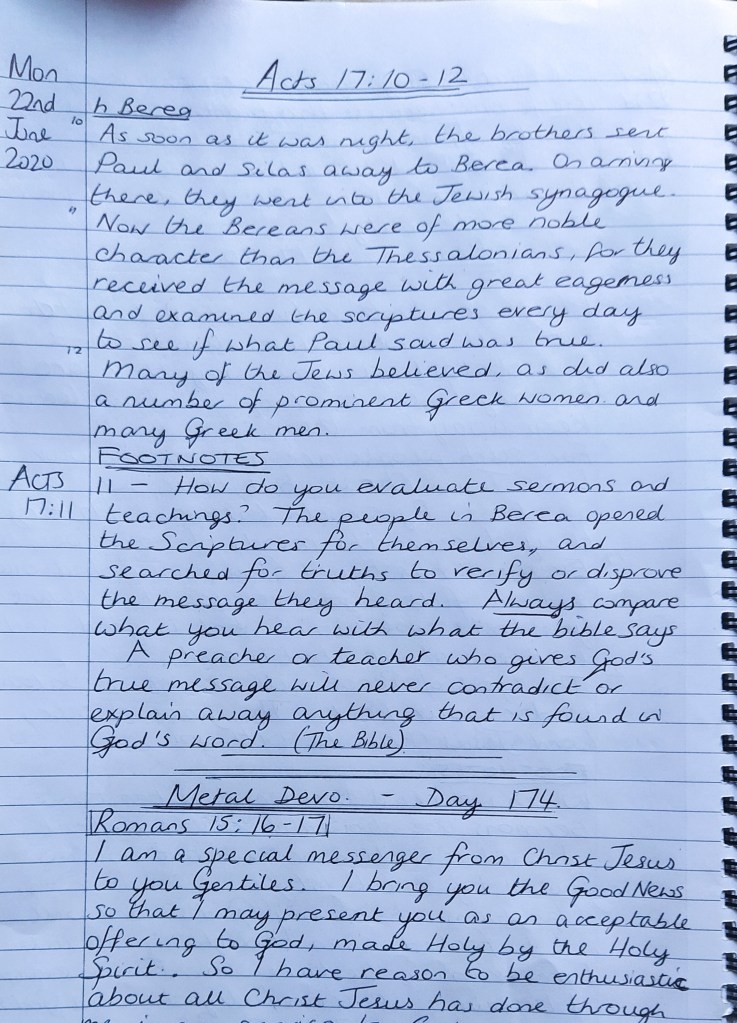 Mon
22nd
June
2020
Acts 17:10-12
In Berea
10 As soon as it was night, the brothers sent
Paul and Silas away to Berea. On arriving
there, they went into the Jewish synagogue.
11 Now the Bereans were of more noble
character than the Thessalonians, for they
received the message with great eagerness
and examined the scriptures every day
to see if what Paul said was true.
12 Many of the Jews believed, as did also
a number of prominent Greek women and
many Greek men.
FOOTNOTES
ACTS
17:11
11 - How do you evaluate sermons and
teachings? The people in Berea opened
the Scriptures for themselves, and
searched for truths to verify or disprove
the message they heard. Always compare
what you hear with what the bible says
A preacher or teacher who gives God's
true message will never contradict or
explain away anything that is found in
God's word. (The Bible)
Metal Devo. - Day 174.
Romans 15:16-17
I am a special messenger from Christ Jesus
to you Gentiles. I bring you the Good News
so that I may present you as an acceptable
offering to God, made Holy by the Holy
Spirit. So I have reason to be enthusiastic
about all Christ Jesus has done through